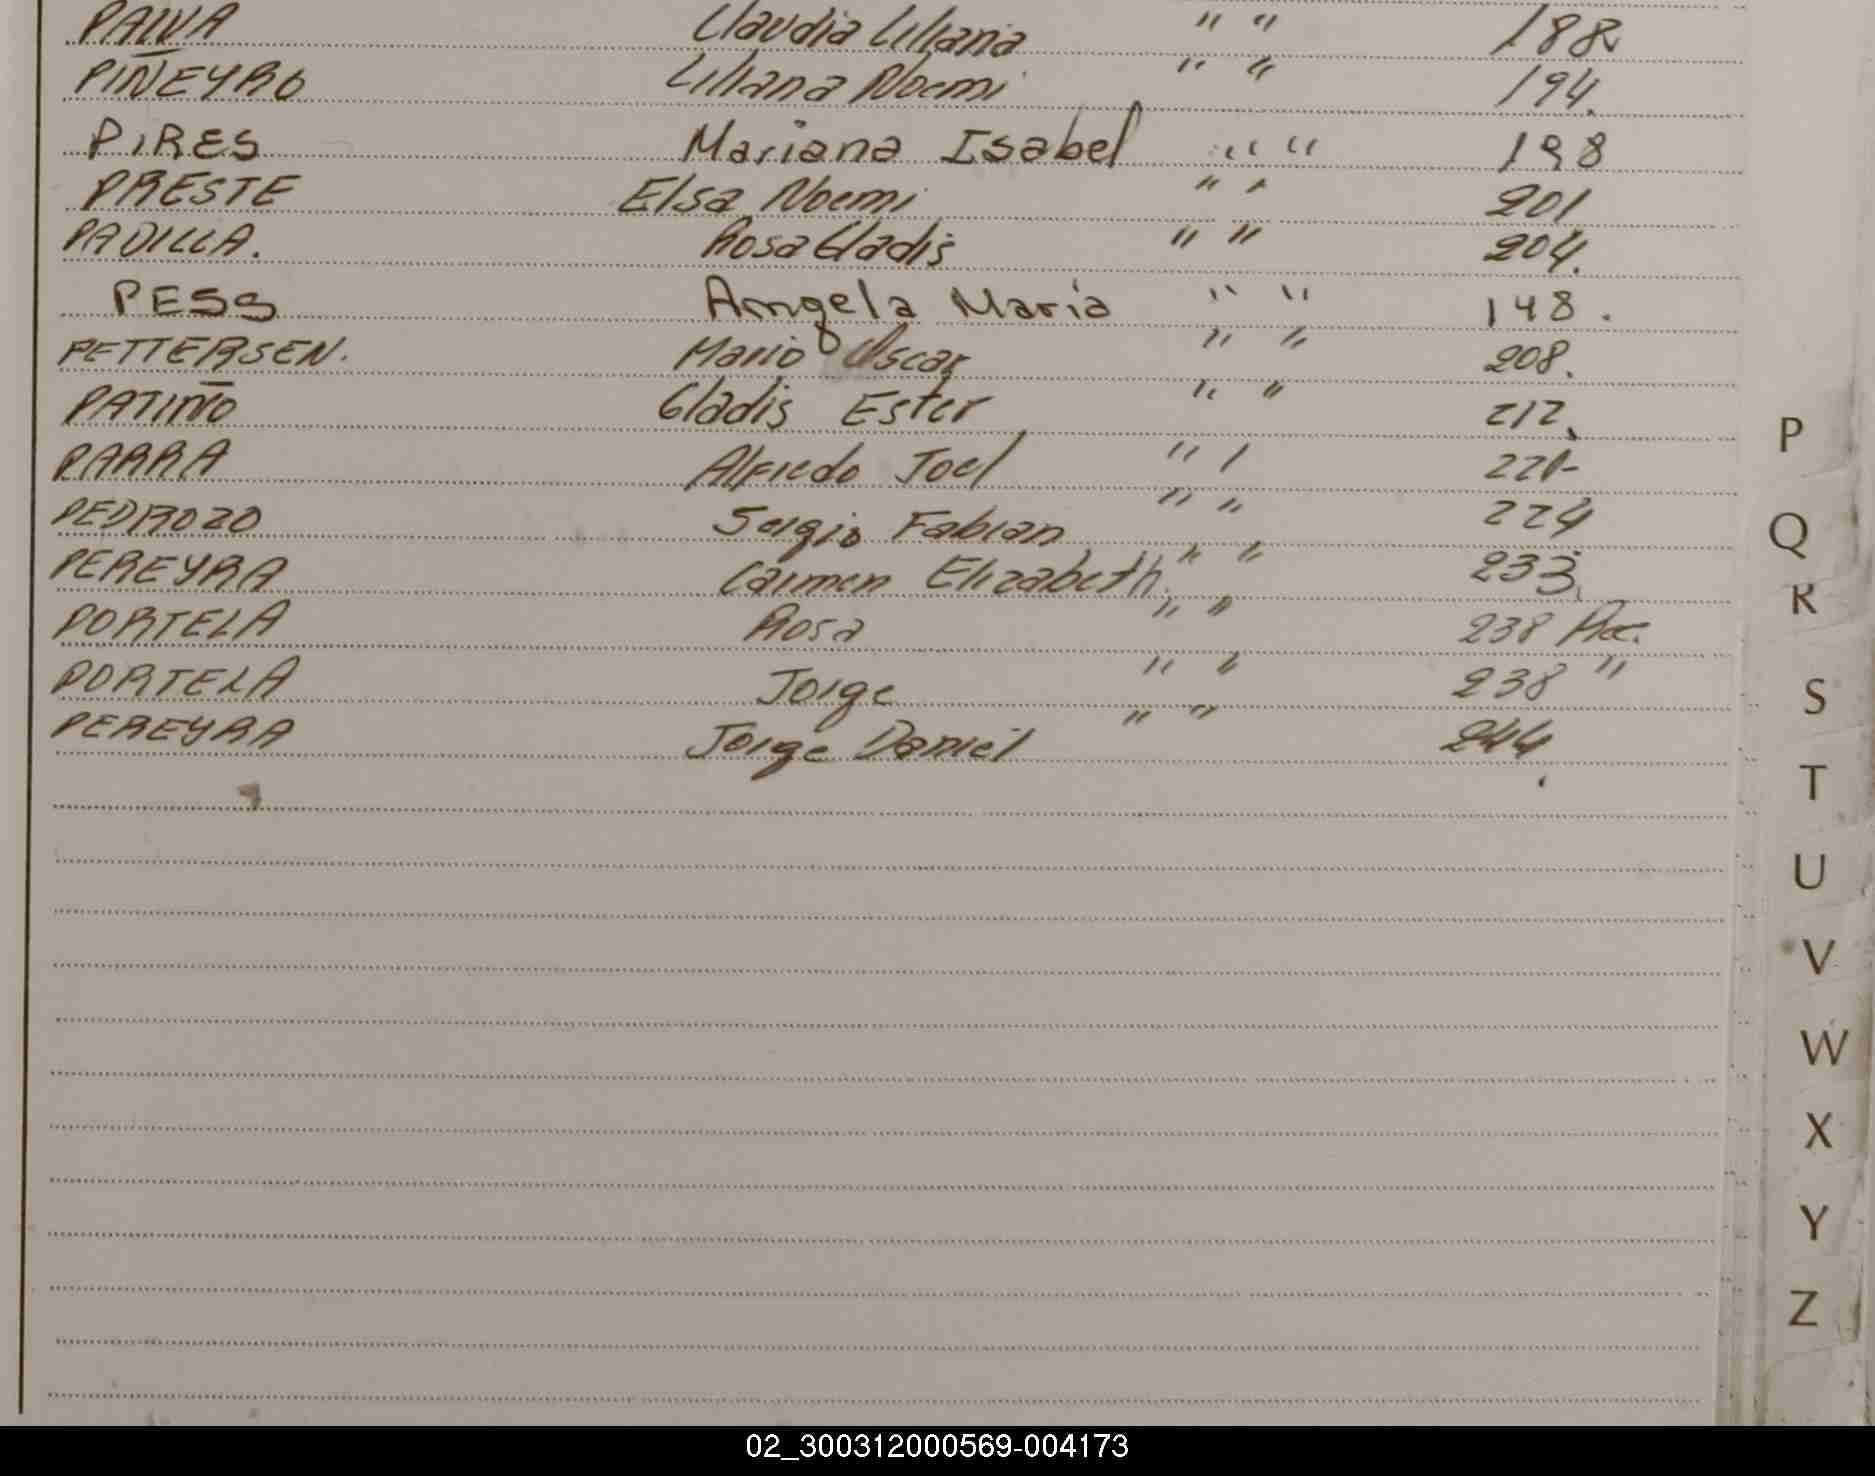 PAIVA Claudia Liliana " " 188
PIÑEYRO Liliana Noemi " " 194.
PIRES Mariana Isabel " " 198
PRESTE Elsa Noemi " " 201
PADILLA. Rosa Gladis " " 204.
PESS Amgela Maria " " 148.
PETTERSEN. Mario Oscar " " 208.
PATIÑO Gladis Ester " " 212.
PARRA Alfredo Joel " " 221-
PEDROZO Sergio Fabian " " 224
PEREYRA Carmen Elizabeth. " " 233.
PORTELA Rosa " " 238
PORTELA Jorge " " 238 "
PEREYRA Jorge Daniel " " 244.
P
Q
R
S
T
U
V
W
X
Y
Z
02_300312000569-004173